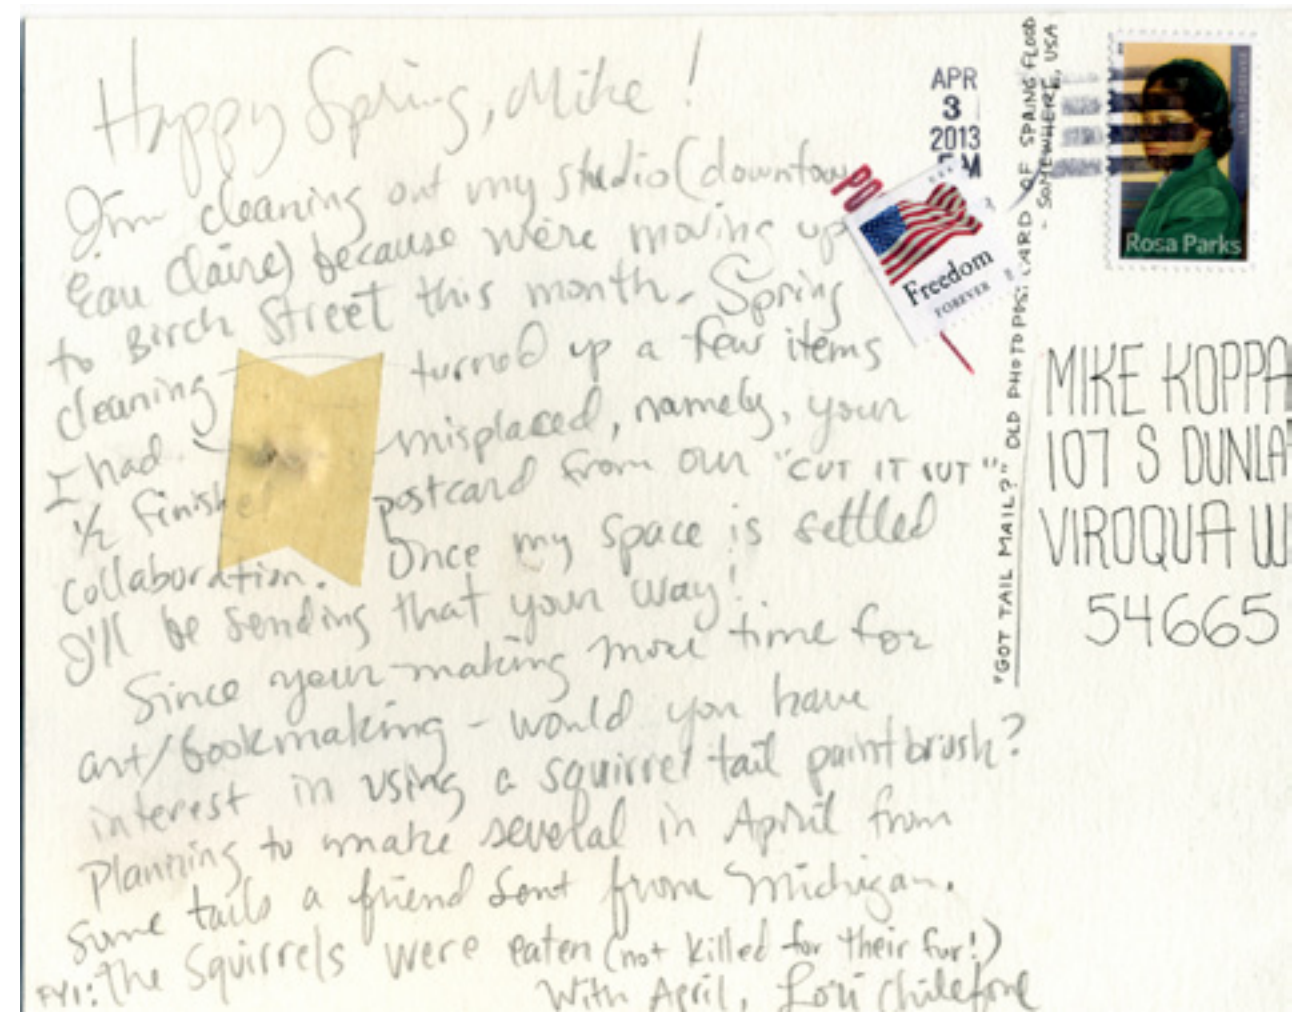 Happy Spring, Mike!
I'm cleaning out my studio (downtown
Eau Claire) because we're moving up
to Birch Street this month. Spring
cleaning turned up a few items
I had misplaced, namely, your
1/2 finished postcard from our "CUT IT OUT"
collaboration. Once my space is settled
I'll be sending that your way!
Since your making more time for
art/bookmaking - would you have
interest in using a squirrel tail paintbrush?
Planning to make several in April from
some tails a friend sent from Michigan.
FYI: The squirrels were eaten (not killed for their fur!)
With April, Lori Chilefone
APR
3
2013
PM
PO
Freedom
FOREVER
"GOT TAIL MAIL?" OLD PHOTO POSTCARD OF SPRING FLOOD
- SOMEWHERE, USA
Rosa Parks
MIKE KOPPA
107 S DUNLA
VIROQUA W
54665